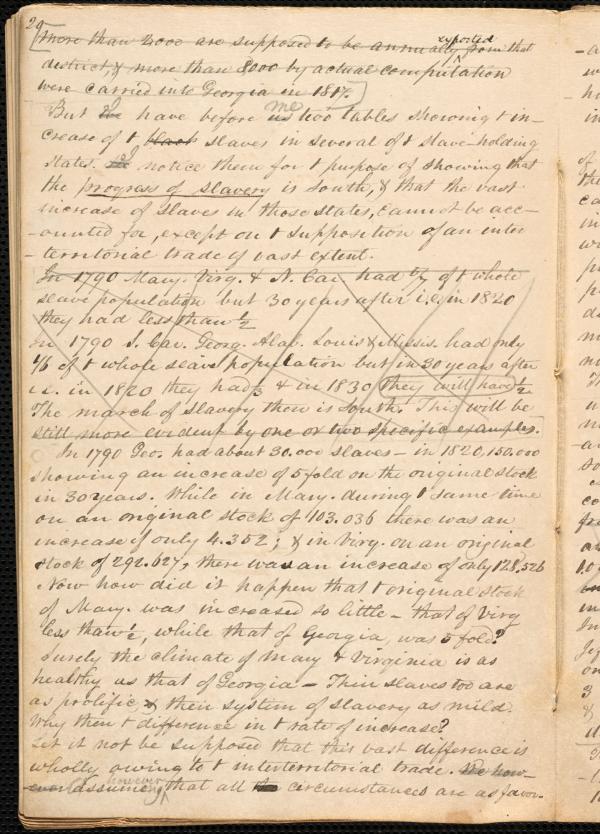 29
more than 2000 are supposed to be annually exported from that
district, & more than 8000 by actual computation
were carried into Georgia in 1817.
But I have before me two tables showing t in-
crease of t black slaves in several of t slave-holding
states. I notice them for t purpose of showing that
the progress of slavery is South, & that the vast
increase of slaves in those states, cannot be acc-
-ounted for, except on t supposition of an inter
-territorial trade of vast extent.
In 1790 Mary. Virg. & N. Car. had of t whole
slave population but 30 years after i.e. in 1820
they had less than ½
In 1790 S. Car. Georg. Alab. Louis & Missis. had only
1/6 of t whole slave population but in 30 years after
i.e. in 1820 they had ⅓ & in 1830 they will have ½
The march of slavery then is South. This will be
still more evident by one or two specific examples.
In 1790 Geo. had about 30.000 slaves – in 1820, 150,000
showing an increase of 5 fold on the original stock
in 30 years. While in Mary. during t same time
on an original stock of 103.036 there was an
increase of only 4.352; & in Virg. on an original
stock of 292.627, there was an increase of only 128,526
Now how did it happen that t original stock
of Mary. was increased so little – that of Virg
less than ½, while that of Georgia, was 5 fold?
Surely the climate of Mary & Virginia is as
healthy as that of Georgia – Their slaves too are
as prolific, & their system of slavery as mild.
Why then t difference in t rate of increase?
Let it not be supposed that this vast difference is
wholly owing to t interterritorial trade. We how-
ever assume, however that all circumstances are as favor-